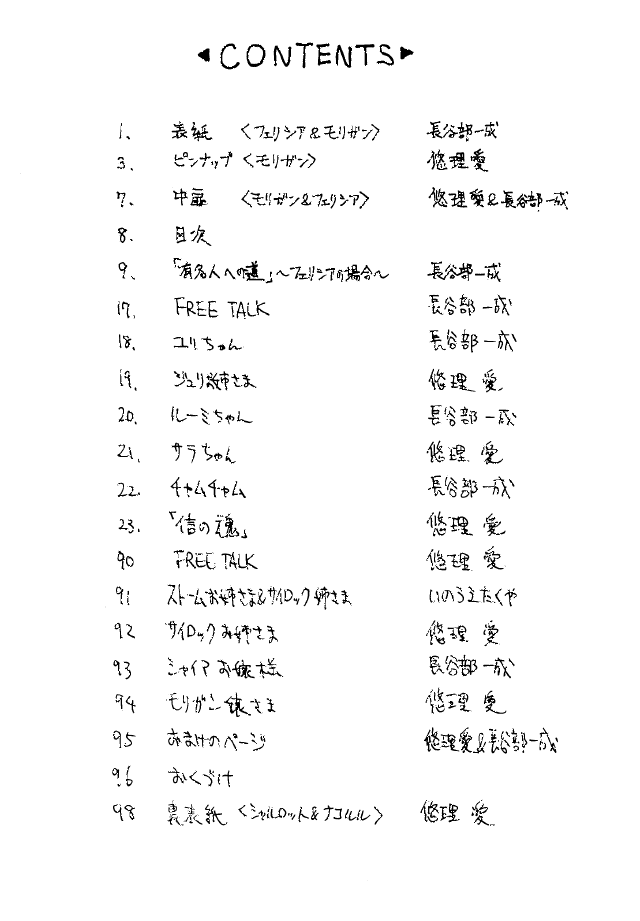 ◀CONTENTS▶
1. 表紙 〈フェリシア&モリガン〉 長谷部一成
3. ピンナップ〈モリガン〉 悠理愛
7. 中扉 〈モリガン&フェリシア〉 悠理愛&長谷部一成
8. 目次
9. 「有名人への道」〜フェリシアの場合〜 長谷部一成
17. FREE TALK 長谷部一成
18. ユリちゃん 長谷部一成
19. ジュリ姉さま 悠理愛
20. ルーミちゃん 長谷部一成
21. サラちゃん 悠理愛
22. チャムチャム 長谷部一成
23. 「信の魂」 悠理愛
90 FREE TALK 悠理愛
91 ストームお姉さま&サイロック姉さま いのうえたくや
92 サイロックお姉さま 悠理愛
93 シャイアお嬢様 長谷部一成
94 モリガン嬢さま 悠理愛
95 おまけのページ 悠理愛&長谷部一成
96 おくづけ
98 裏表紙 〈シャルロット&ナコルル〉 悠理愛